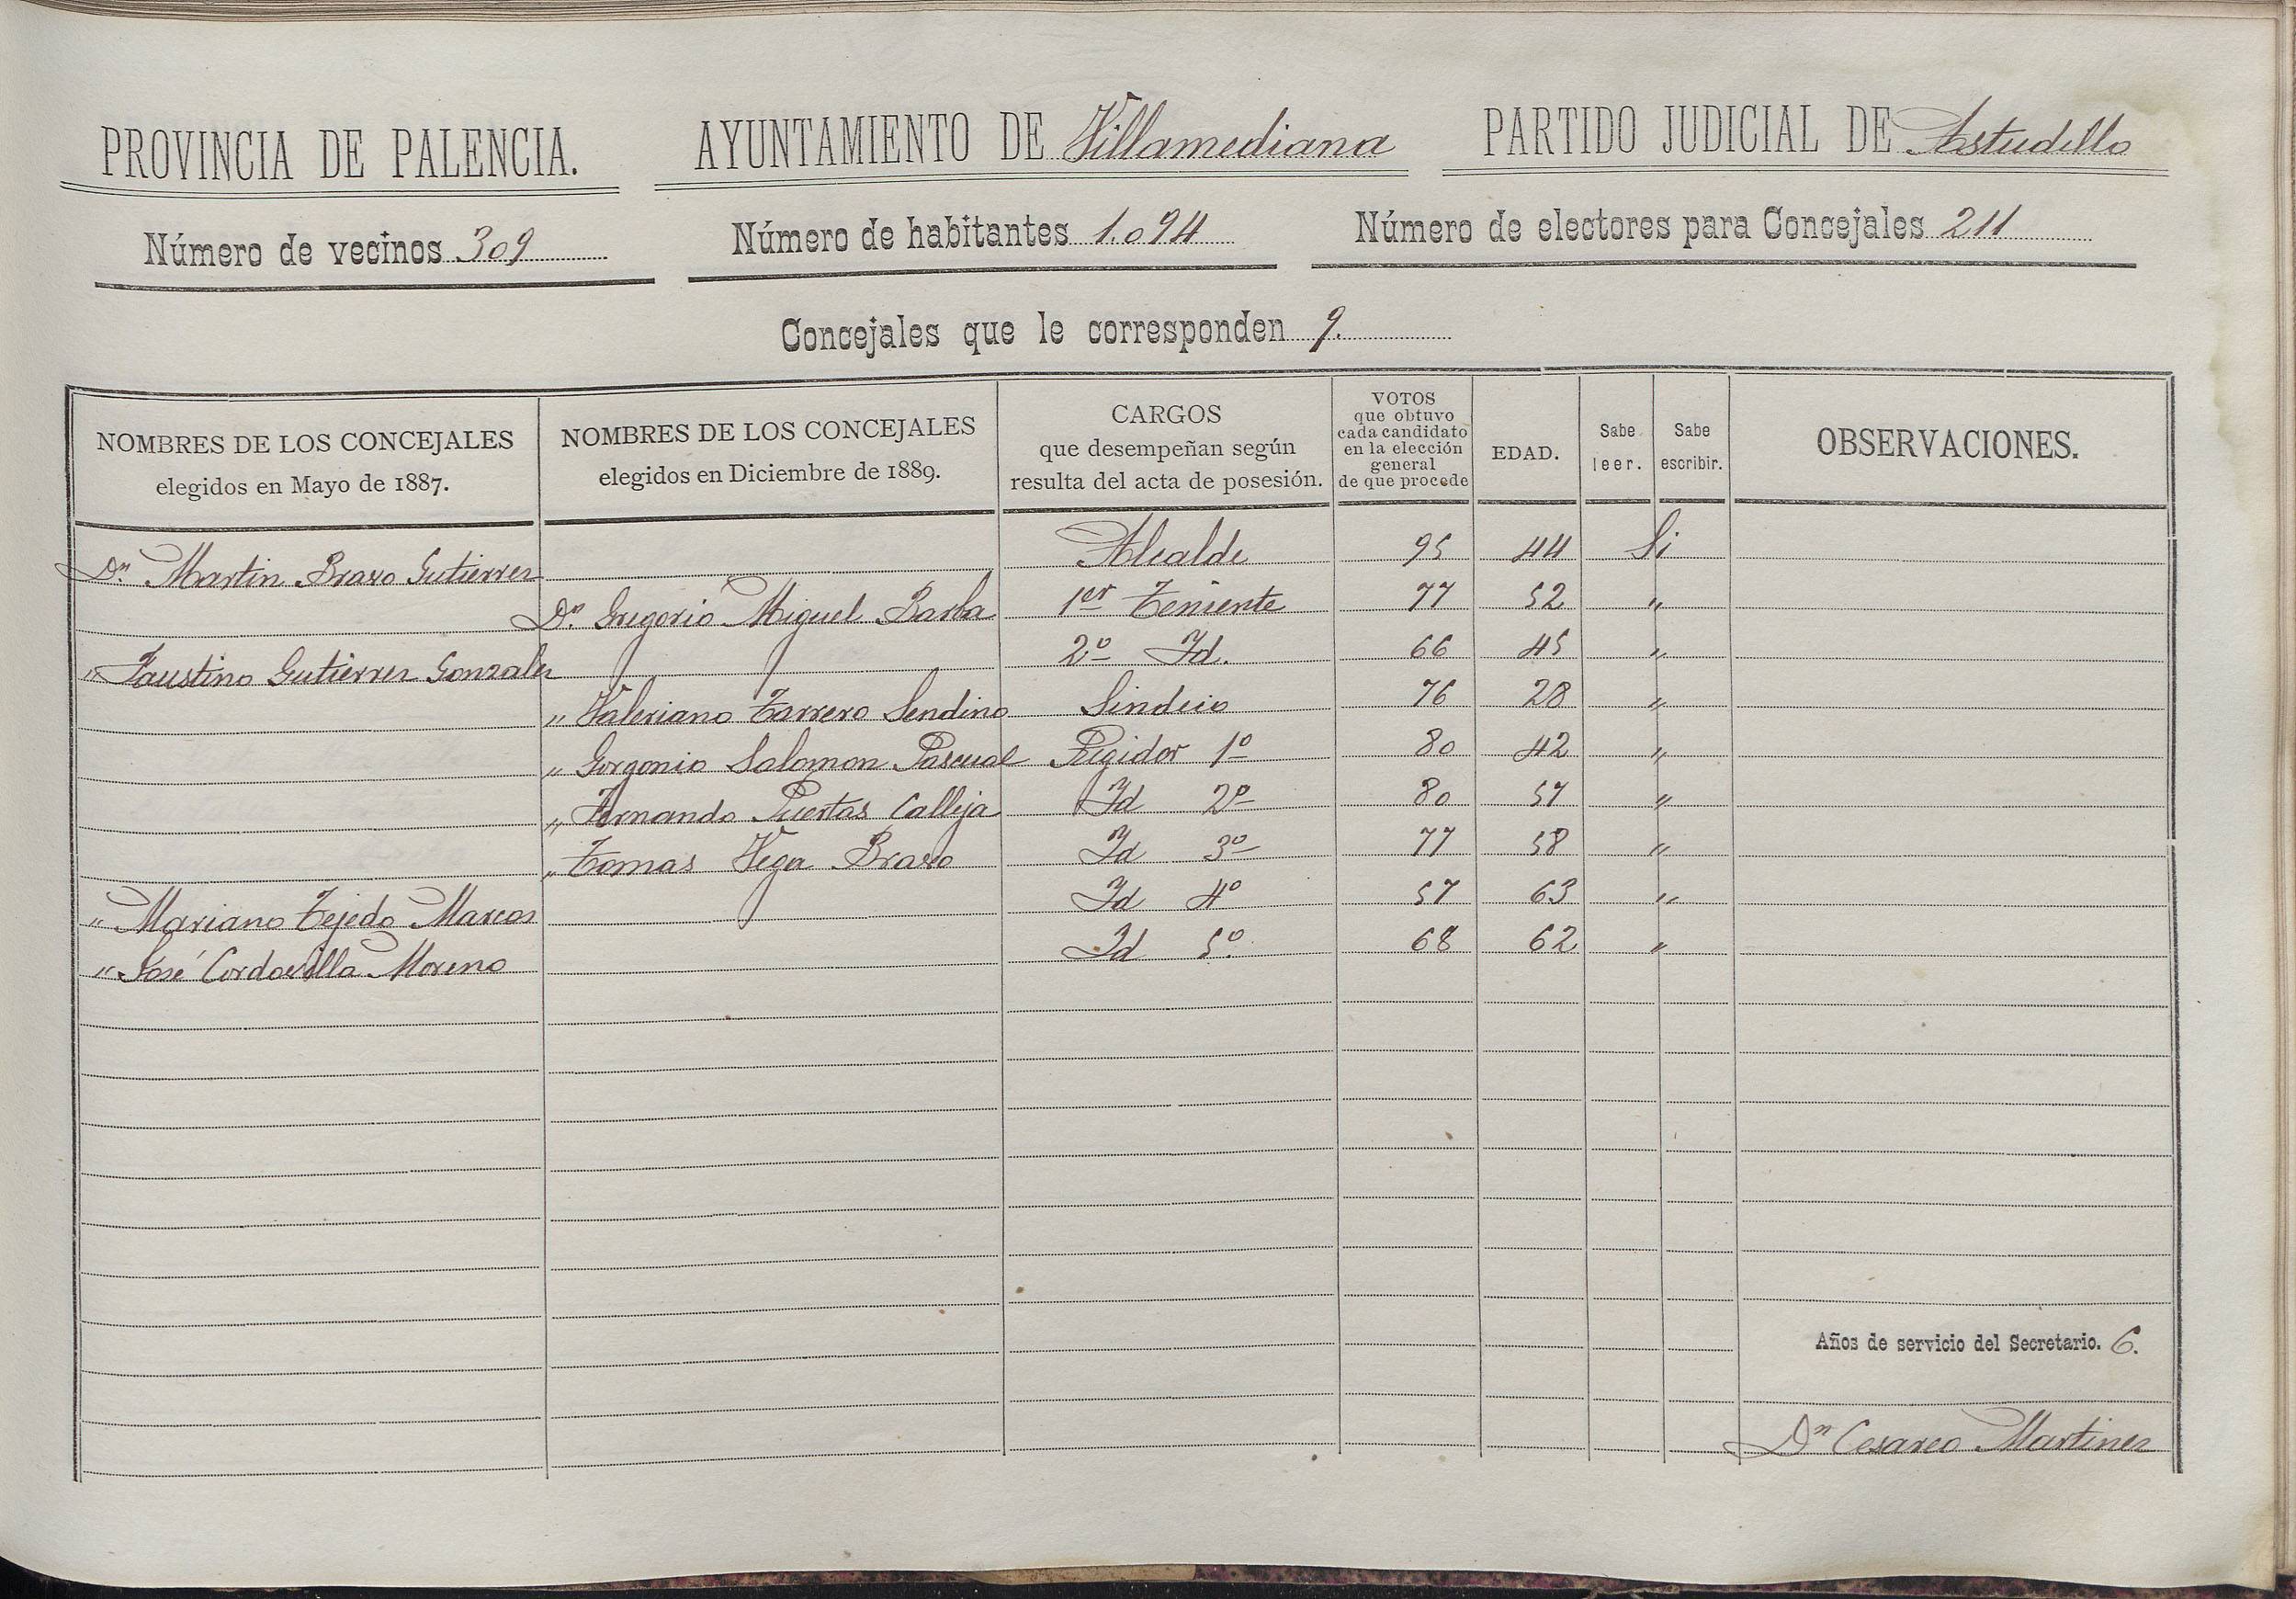 PROVINCIA DE PALENCIA. AYUNTAMIENTO DE Villamediana PARTIDO JUDICIAL DE Astudillo
Número de vecinos 309 Número de habitantes 1.094 Número de electores para Concejales 211
Concejales que le corresponden 9.
NOMBRES DE LOS CONCEJALES elegidos en Mayo de 1887. NOMBRES DE LOS CONCEJALES elegidos en Diciembre de 1889. CARGOS que desempeñan según resulta del acta de posesión. VOTOS que obtuvo cada candidato en la elección general de que procede EDAD. Sabe leer. Sabe escribir. OBSERVACIONES.
Dn. Martin Bravo Gutierrez Alcalde 95 44 Si
Dn. Gregorio Miguel Barba 1er Teniente 77 52 "
" Faustino Gutierrez Gonzalez 2º Id. 66 45 "
" Valeriano Tarrero Sendino Sindico 76 28 "
" Gorgonio Salomon Pascual Regidor 1º 80 42 "
" Fernando Puertas Calleja Id 2º 80 57 "
" Tomas Vega Bravo Id 3º 77 58 "
" Mariano Tejedo Marcos Id 4º 57 63 "
" José Cordovilla Moreno Id 5º. 68 62 "
Años de servicio del Secretario. 6.
Dn Cesareo Martinez